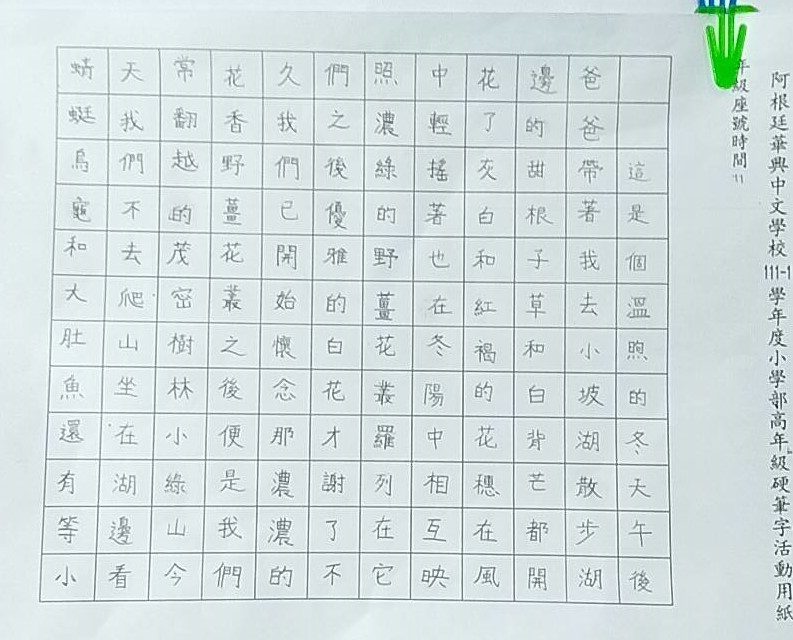 阿根廷華興中文學校111-1學年度小學部高年級硬筆字活動用紙
年級座號時間11
這是個溫煦的冬天午後
爸爸帶著我去小坡湖散步湖
邊的甜根子草和白背芒都開
花了灰白和紅褐的花穗在風
中輕搖著也在冬陽中相互映
照濃綠的野薑花叢羅列在它
們之後優雅的白花才謝了不
久我們已開始懷念那濃濃的
花香野薑花叢之後便是我們
常翻越的茂密樹林小綠山今
天我們不去爬山坐在湖邊看
蜻蜓烏龜和大肚魚還有等小